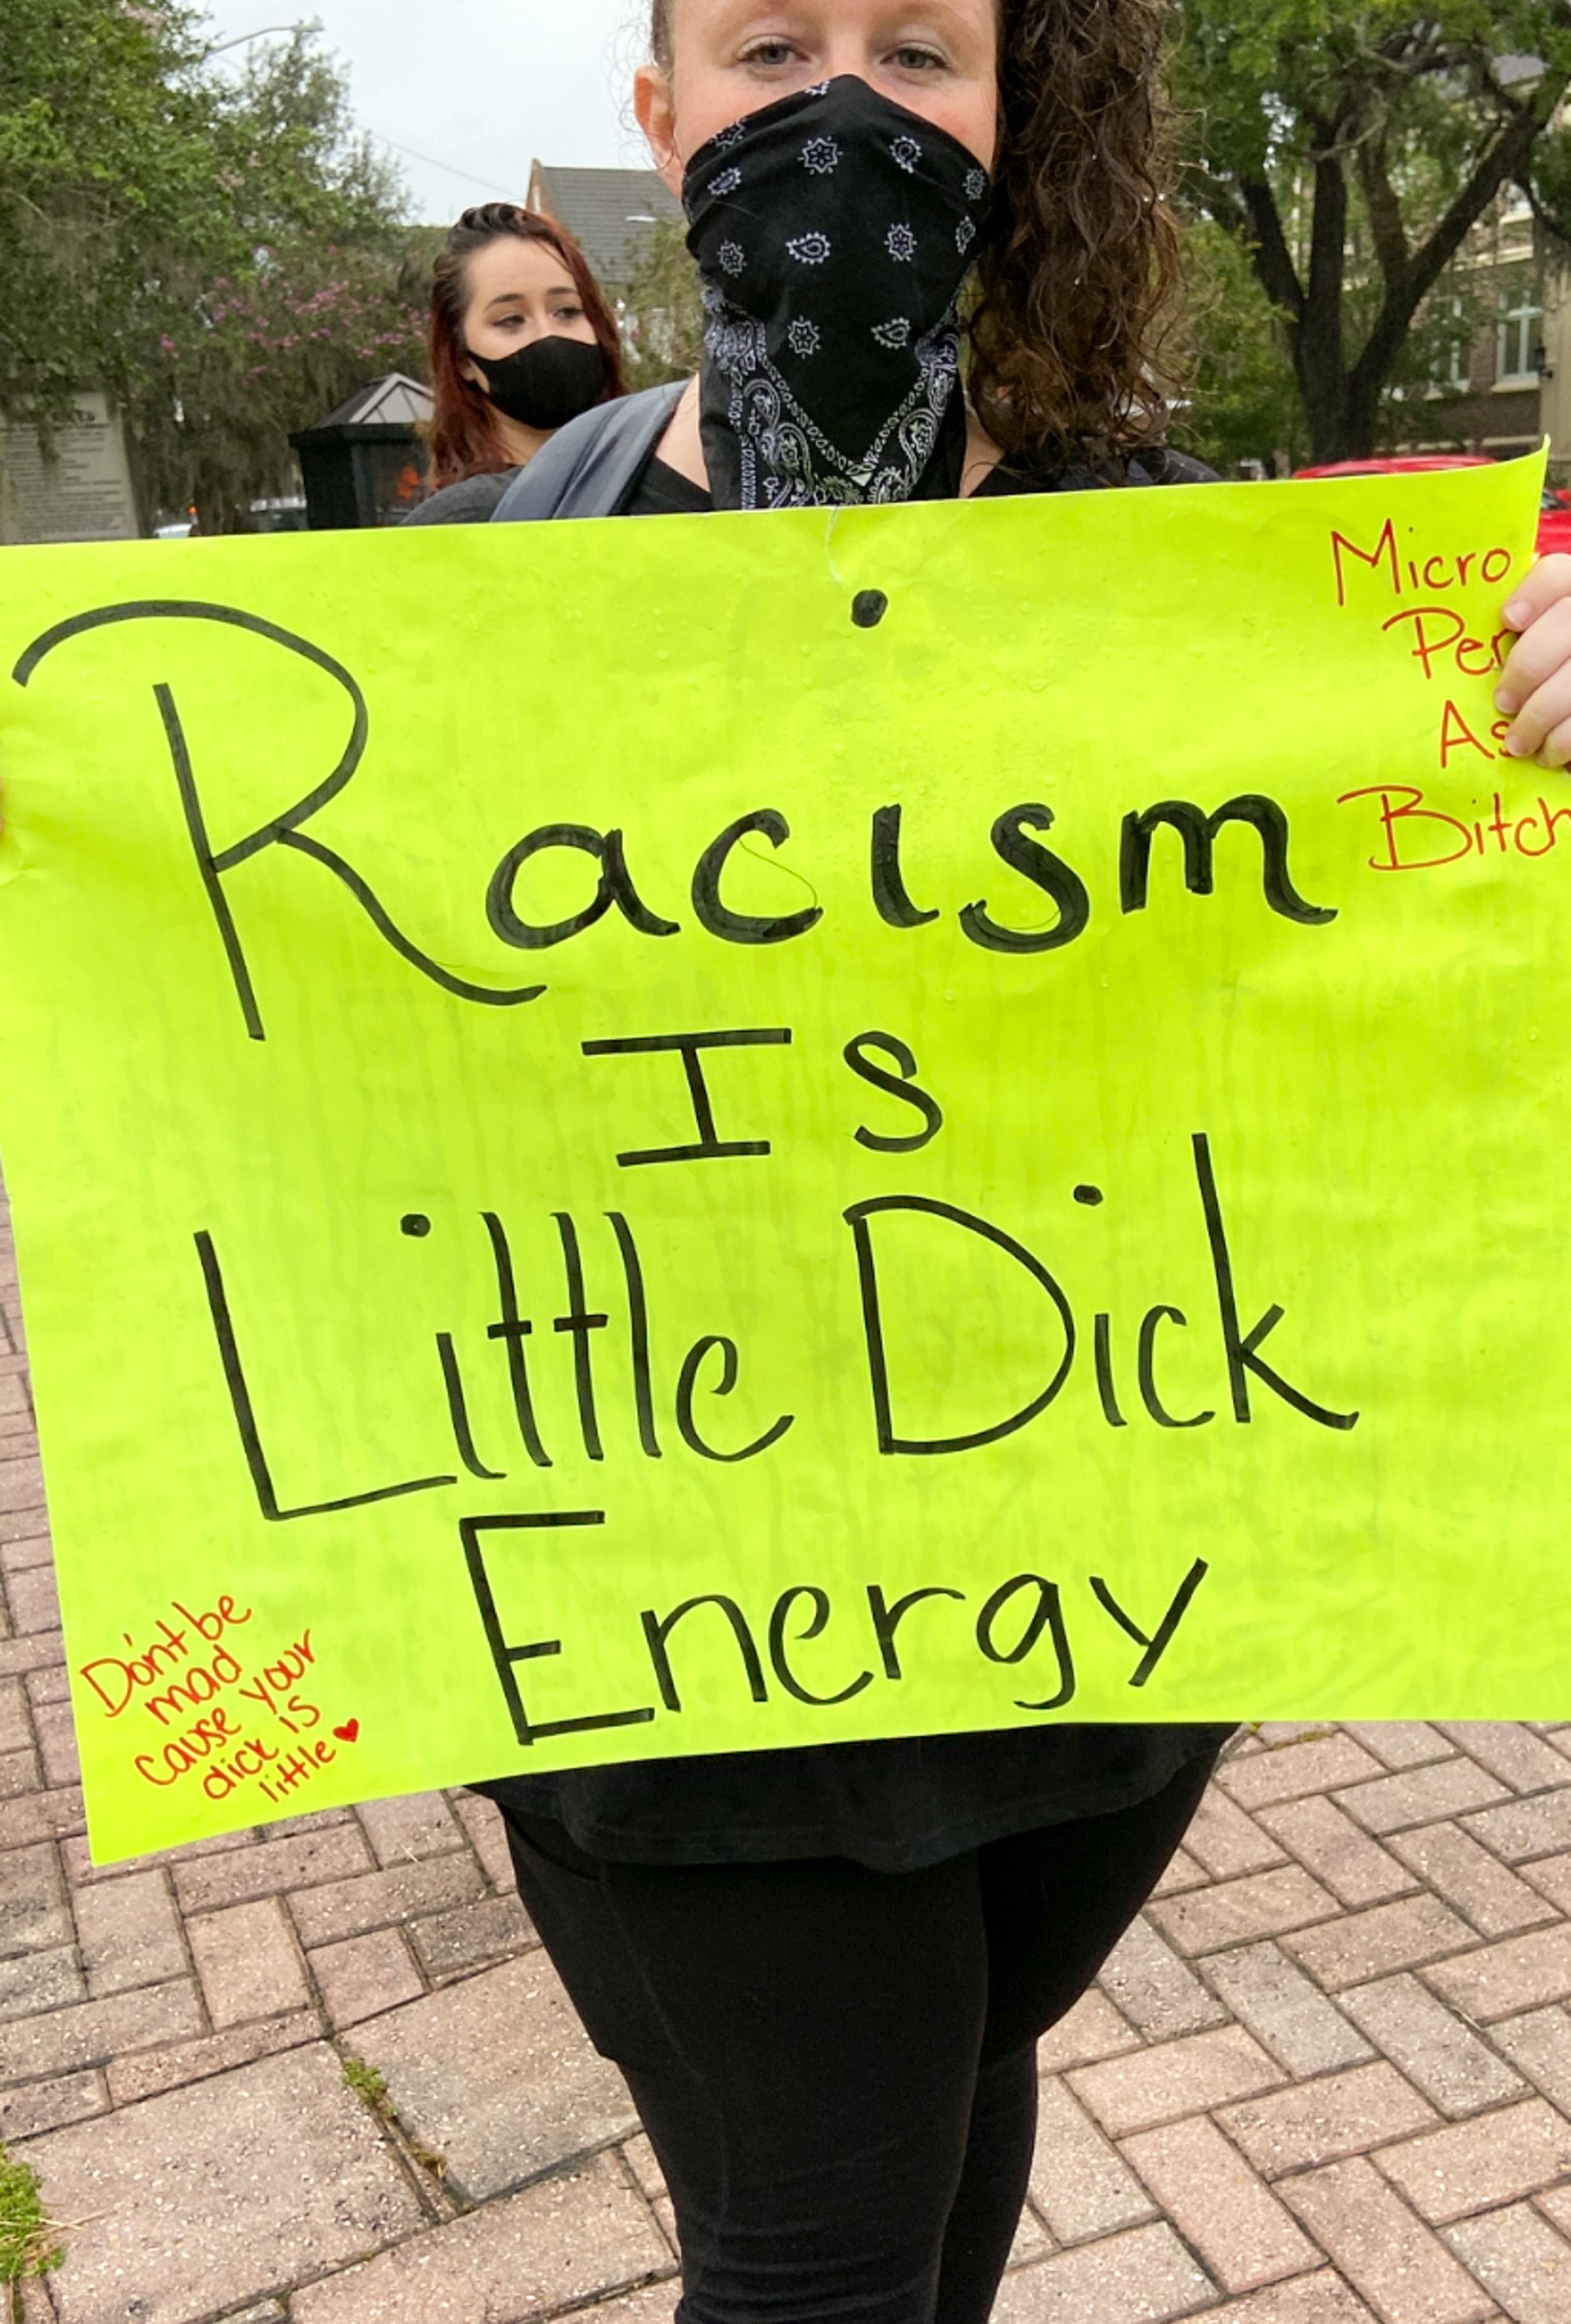 Micro
Per
As
Bitch
Racism
Is
Little Dick
Energy
Don't be
mad
cause your
dick is
little